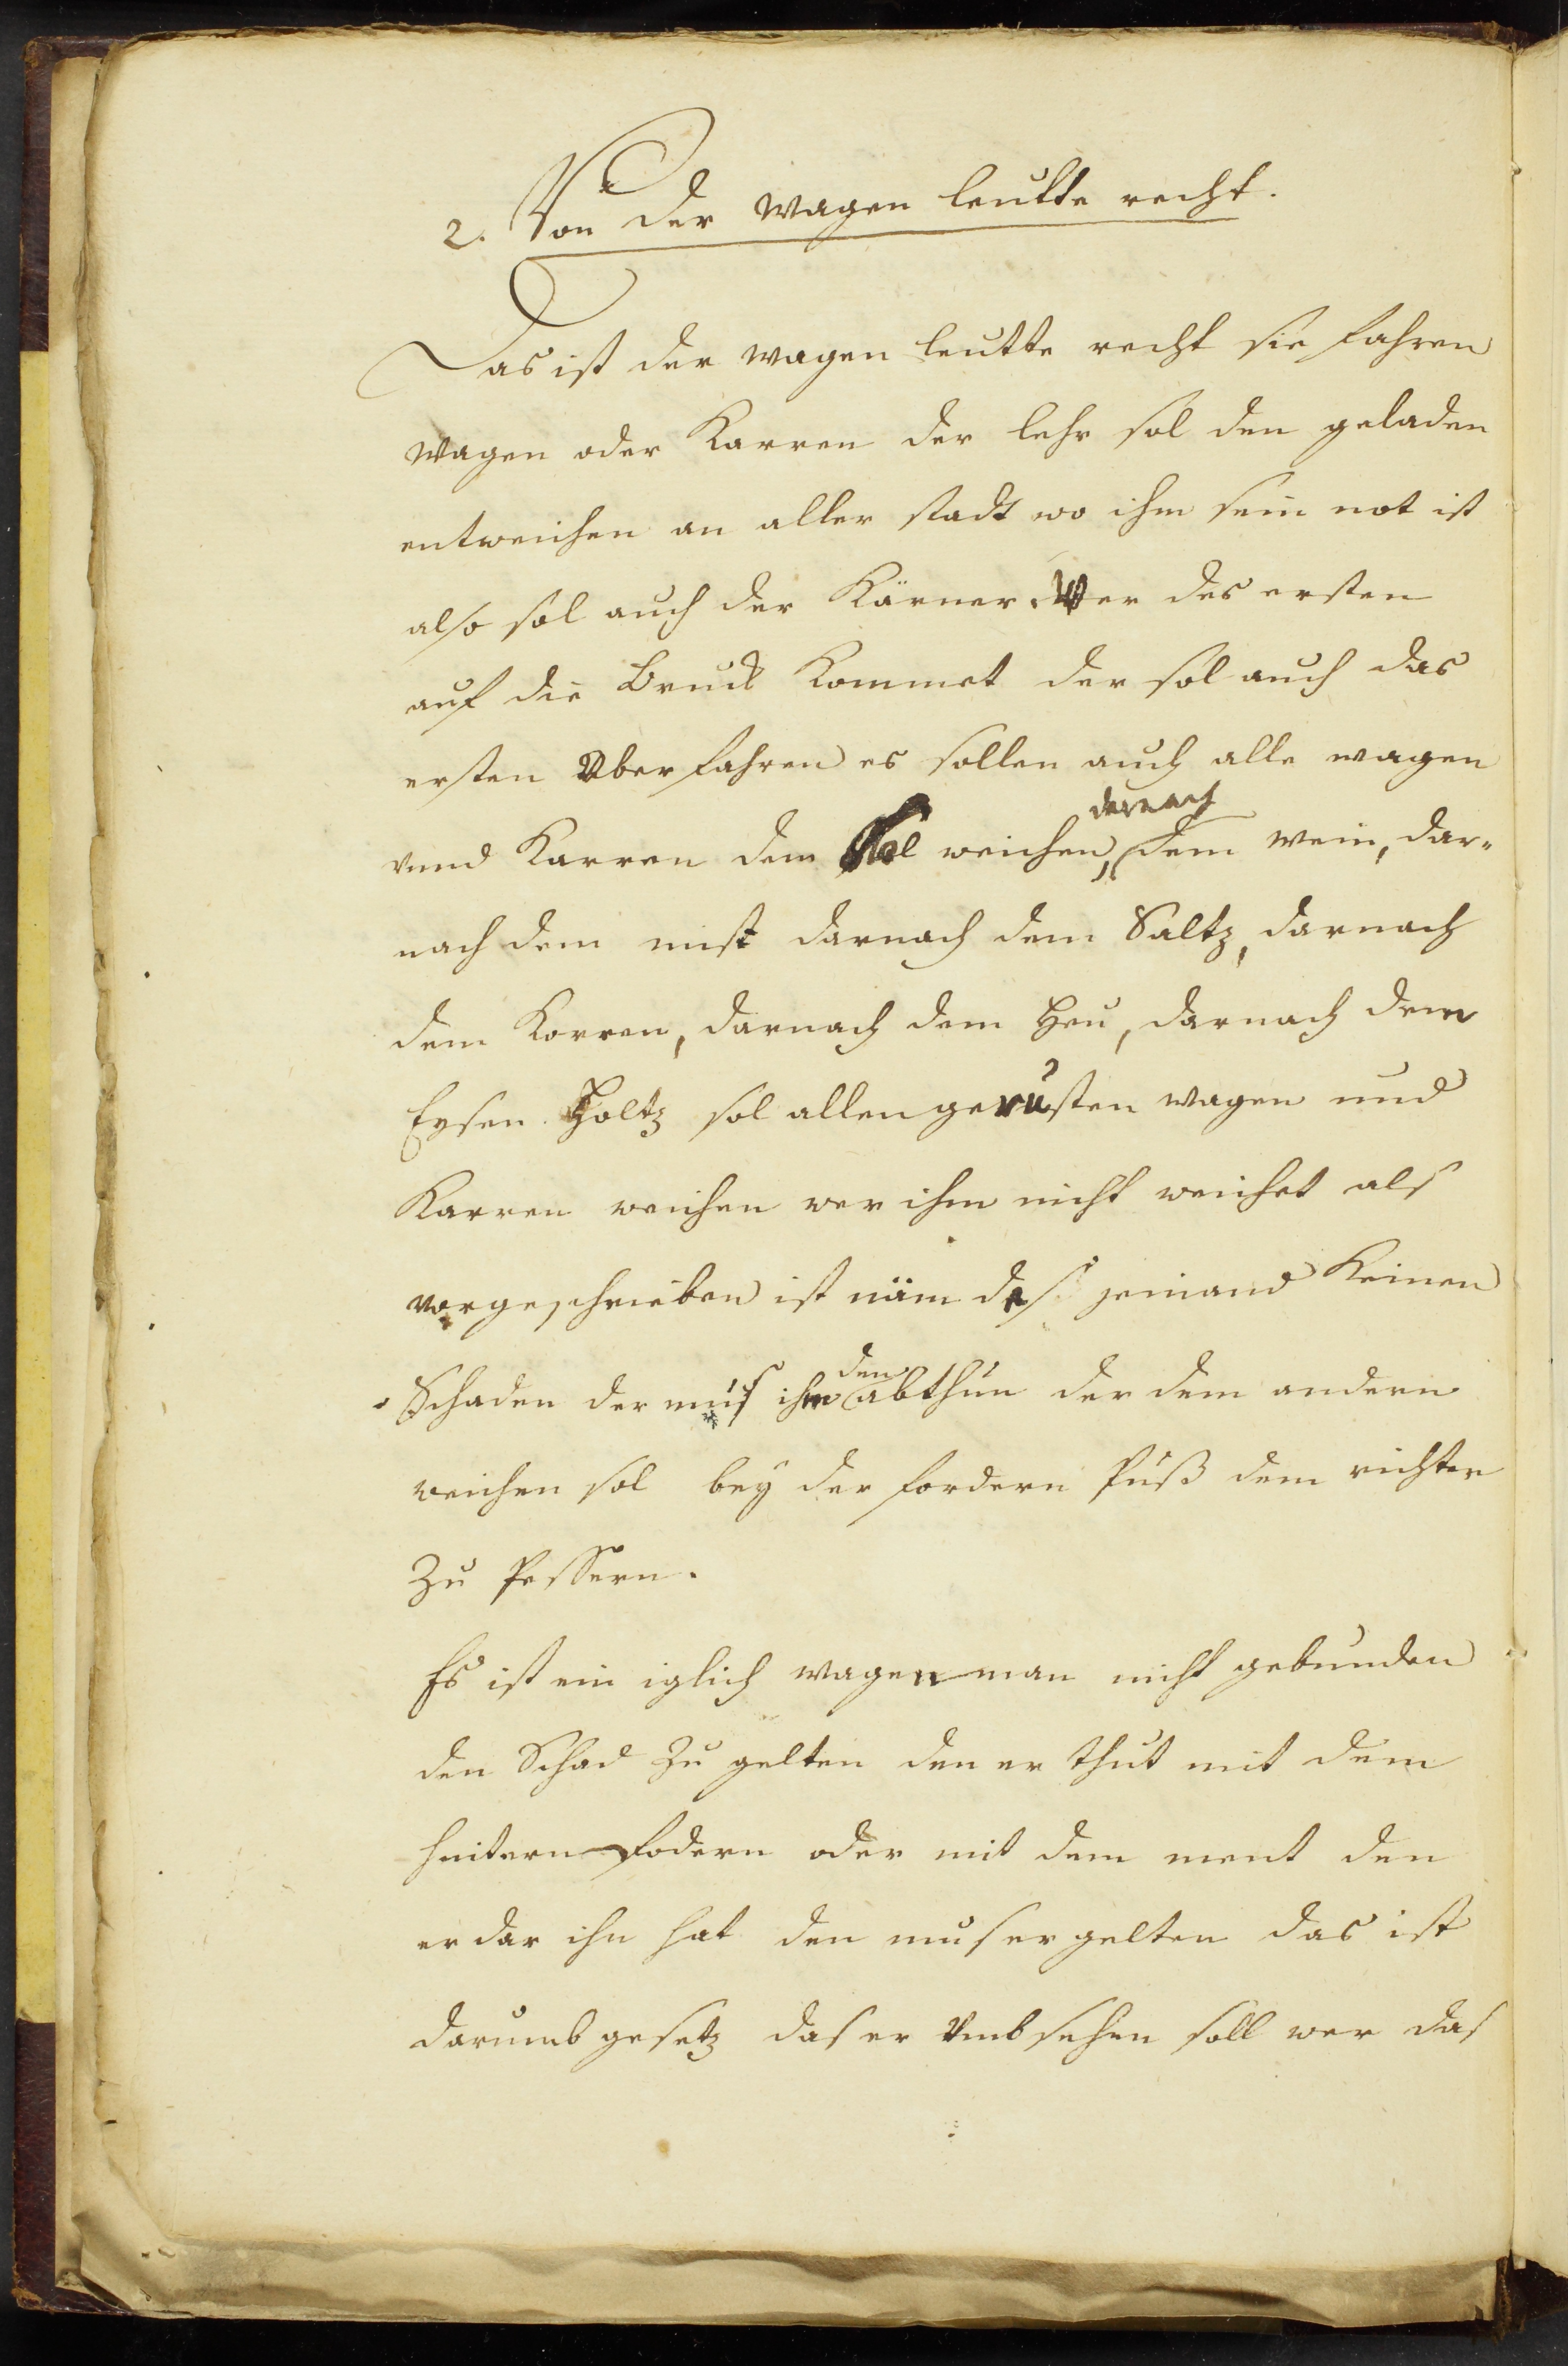 2. Von der wagen leutte recht.
Das ist der wagen leutte recht sie fahren
wagen oder Karren der lehr sol den geladen
entweichen an aller stadt wo ihm sein not ist
also sol auch der Kärner. Wer des ersten
auf die Bruck kommet der sol auch das
ersten Vberfahren es sollen auch alle wagen
vnnd Karren dem weichen, darnach dem wein, dar-
nach dem mist darnach dem Saltz, darnach
dem Korren, darnach dem Heu, darnach dem
Eysen. Holtz sol allen gerüsten wagen und
Karren weichen wer ihm nicht weichet als
vorgeschrieben ist näm des jemand Keinen
Schaden der mus ihm den abthun der dem andern
weichen sol bey der fordern Puß dem richter
zu Pessern.
Es ist ein iglich wagenman nicht gebunden
den Schad zu gelten den er thut mit dem
hintern fodern oder mit dem ment den
er dar ihn hat den mus er gelten das ist
darumb gesetz das er Vmbsehen soll wer das